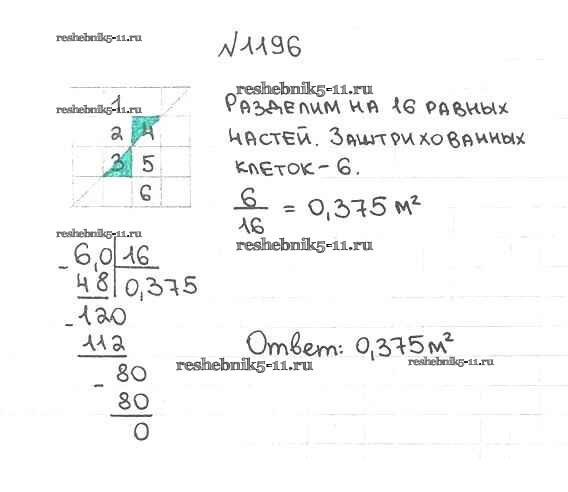 reshebnik5-11.ru
№1196
reshebnik5-11.ru
1
reshebnik5-11.ru
Разделим на 16 равных
2 4
частей. Заштрихованных
3 5
клеток – 6.
6
6/16 = 0,375 м²
reshebnik5-11.ru
reshebnik5-11.ru
- 6,0 | 16
48 | 0,375
- 120
112
- 80
80
0
Ответ: 0,375 м²
reshebnik5-11.ru
reshebnik5-11.ru